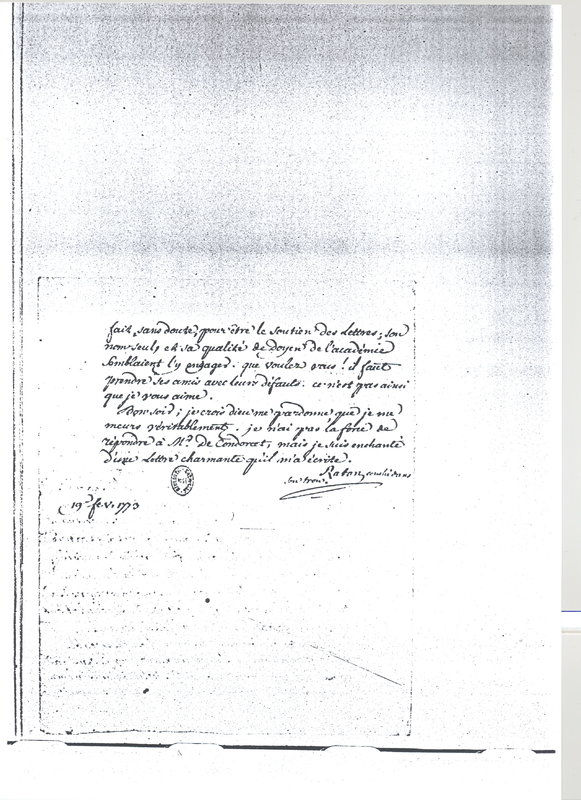 fait, sans doute, pour être le soutien des Lettres; son
nom seul, et sa qualité de Doyen de l'académie
semblaient l'y engager. que voulez vous! il faut
prendre ses amis avec leurs défauts. ce n'est pas ainsi
que je vous aime.
Bon soir; je crois dieu me pardonne que je me
meurs véritablement. je n'ai pas la force de
répondre à Mr. De Condorcet, mais je suis enchanté
d'une Lettre charmante qu'il m'a écrite.
Raton, couché dans
son trou.
19e fev. 1773